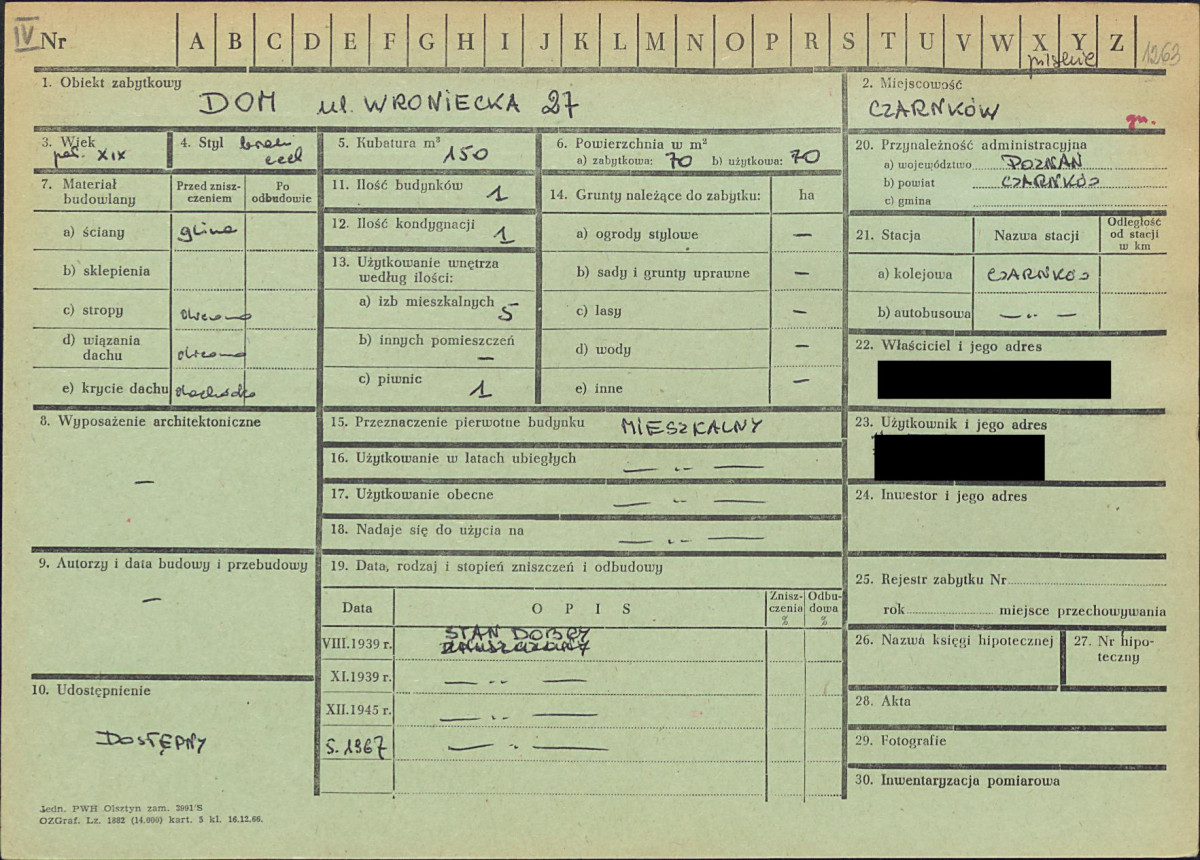 IV Nr A B C D E F G H I J K L M N O P R S T U V W X Y Z 1263
pilskie
1. Obiekt zabytkowy
DOM ul. WRONIECKA 27
2. Miejscowość
CZARNKÓW
gm.
3. Wiek
poł. XIX
4. Styl
brak
cech
5. Kubatura m³ 150
6. Powierzchnia w m²
a) zabytkowa: 70 b) użytkowa: 70
20. Przynależność administracyjna
a) województwo POZNAŃ
b) powiat CZARNKÓW
c) gmina
7. Materiał budowlany
Przed zniszczeniem
Po odbudowie
a) ściany glina
b) sklepienia
c) stropy drewno
d) wiązania dachu drewno
e) krycie dachu dachówka
11. Ilość budynków 1
12. Ilość kondygnacji 1
13. Użytkowanie wnętrza
według ilości:
a) izb mieszkalnych 5
b) innych pomieszczeń —
c) piwnic 1
14. Grunty należące do zabytku: ha
a) ogrody stylowe —
b) sady i grunty uprawne —
c) lasy —
d) wody —
e) inne —
21. Stacja Nazwa stacji Odległość od stacji w km
a) kolejowa CZARNKÓW
b) autobusowa — „ —
22. Właściciel i jego adres
23. Użytkownik i jego adres
24. Inwestor i jego adres
8. Wyposażenie architektoniczne
—
15. Przeznaczenie pierwotne budynku MIESZKALNY
16. Użytkowanie w latach ubiegłych — „ —
17. Użytkowanie obecne — „ —
18. Nadaje się do użycia na — „ —
9. Autorzy i data budowy i przebudowy
—
19. Data, rodzaj i stopień zniszczeń i odbudowy
Data OPIS Zniszczenia % Odbudowa %
VIII.1939 r. STAN DOBRY
XI.1939 r. — „ —
XII.1945 r. — „ —
5.1967 — „ —
10. Udostępnienie
DOSTĘPNY
25. Rejestr zabytku Nr
rok miejsce przechowywania
26. Nazwa księgi hipotecznej
27. Nr hipoteczny
28. Akta
29. Fotografie
30. Inwentaryzacja pomiarowa
Jedn. PWH Olsztyn zam. 2991/S
OZGraf. Lz. 1882 (14.000) kart. 5 kl. 16.12.66.